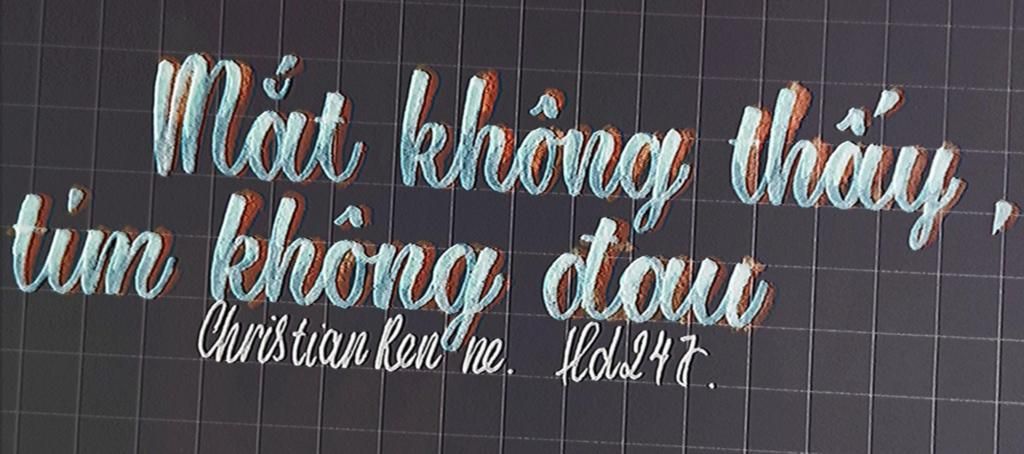 Mắt không thấy,
tim không đau
Christian Ren ne. Hd247.